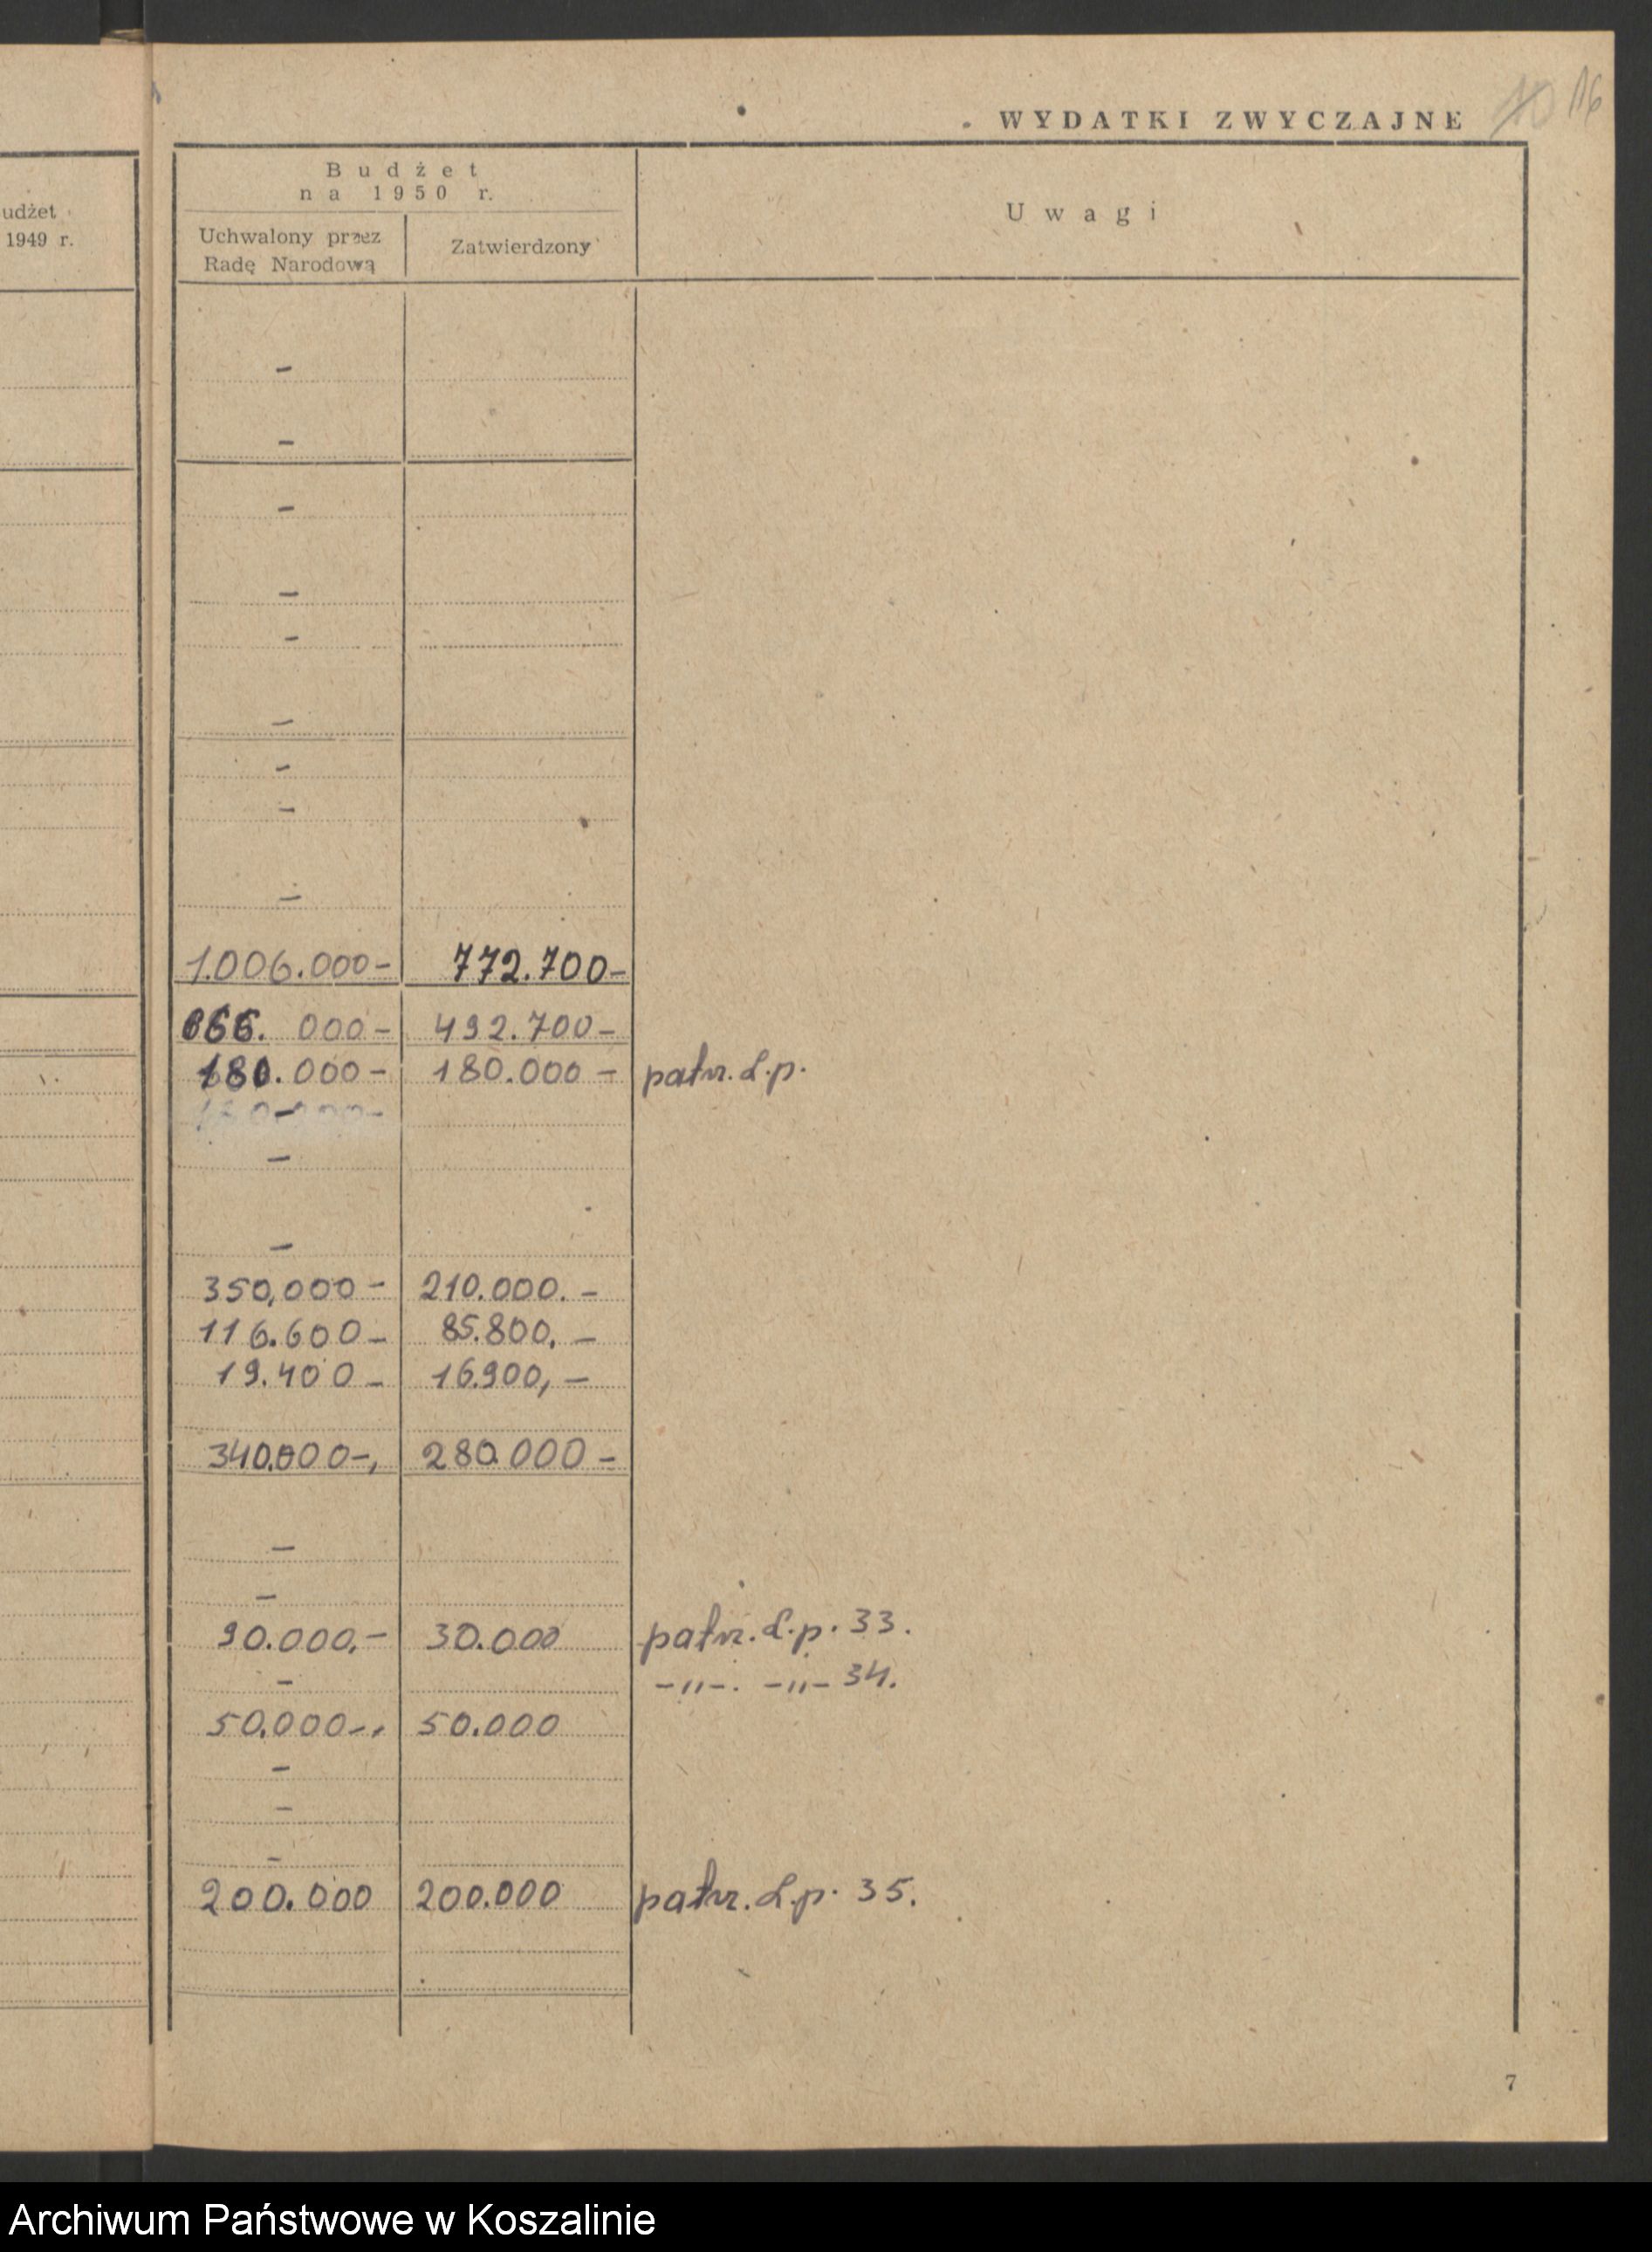 WYDATKI ZWYCZAJNE 10 16
Budżet
na 1950 r.
Uwagi
udżet
1949 r.
Uchwalony przez
Radę Narodową
Zatwierdzony
-
-
-
-
-
-
-
-
-
1.006.000- 772.700-
666.000- 492.700-
180.000- 180.000- patrz. L.p.
-
-
350,000- 210.000.-
116.600- 85.800,-
19.400- 16.900,-
340.000-, 280.000-
-
-
90.000,- 30.000 patrz. L.p. 33.
- -"-. -"- 34.
50.000-, 50.000
-
-
-
200.000 200.000 patrz. L.p. 35.
7
Archiwum Państwowe w Koszalinie